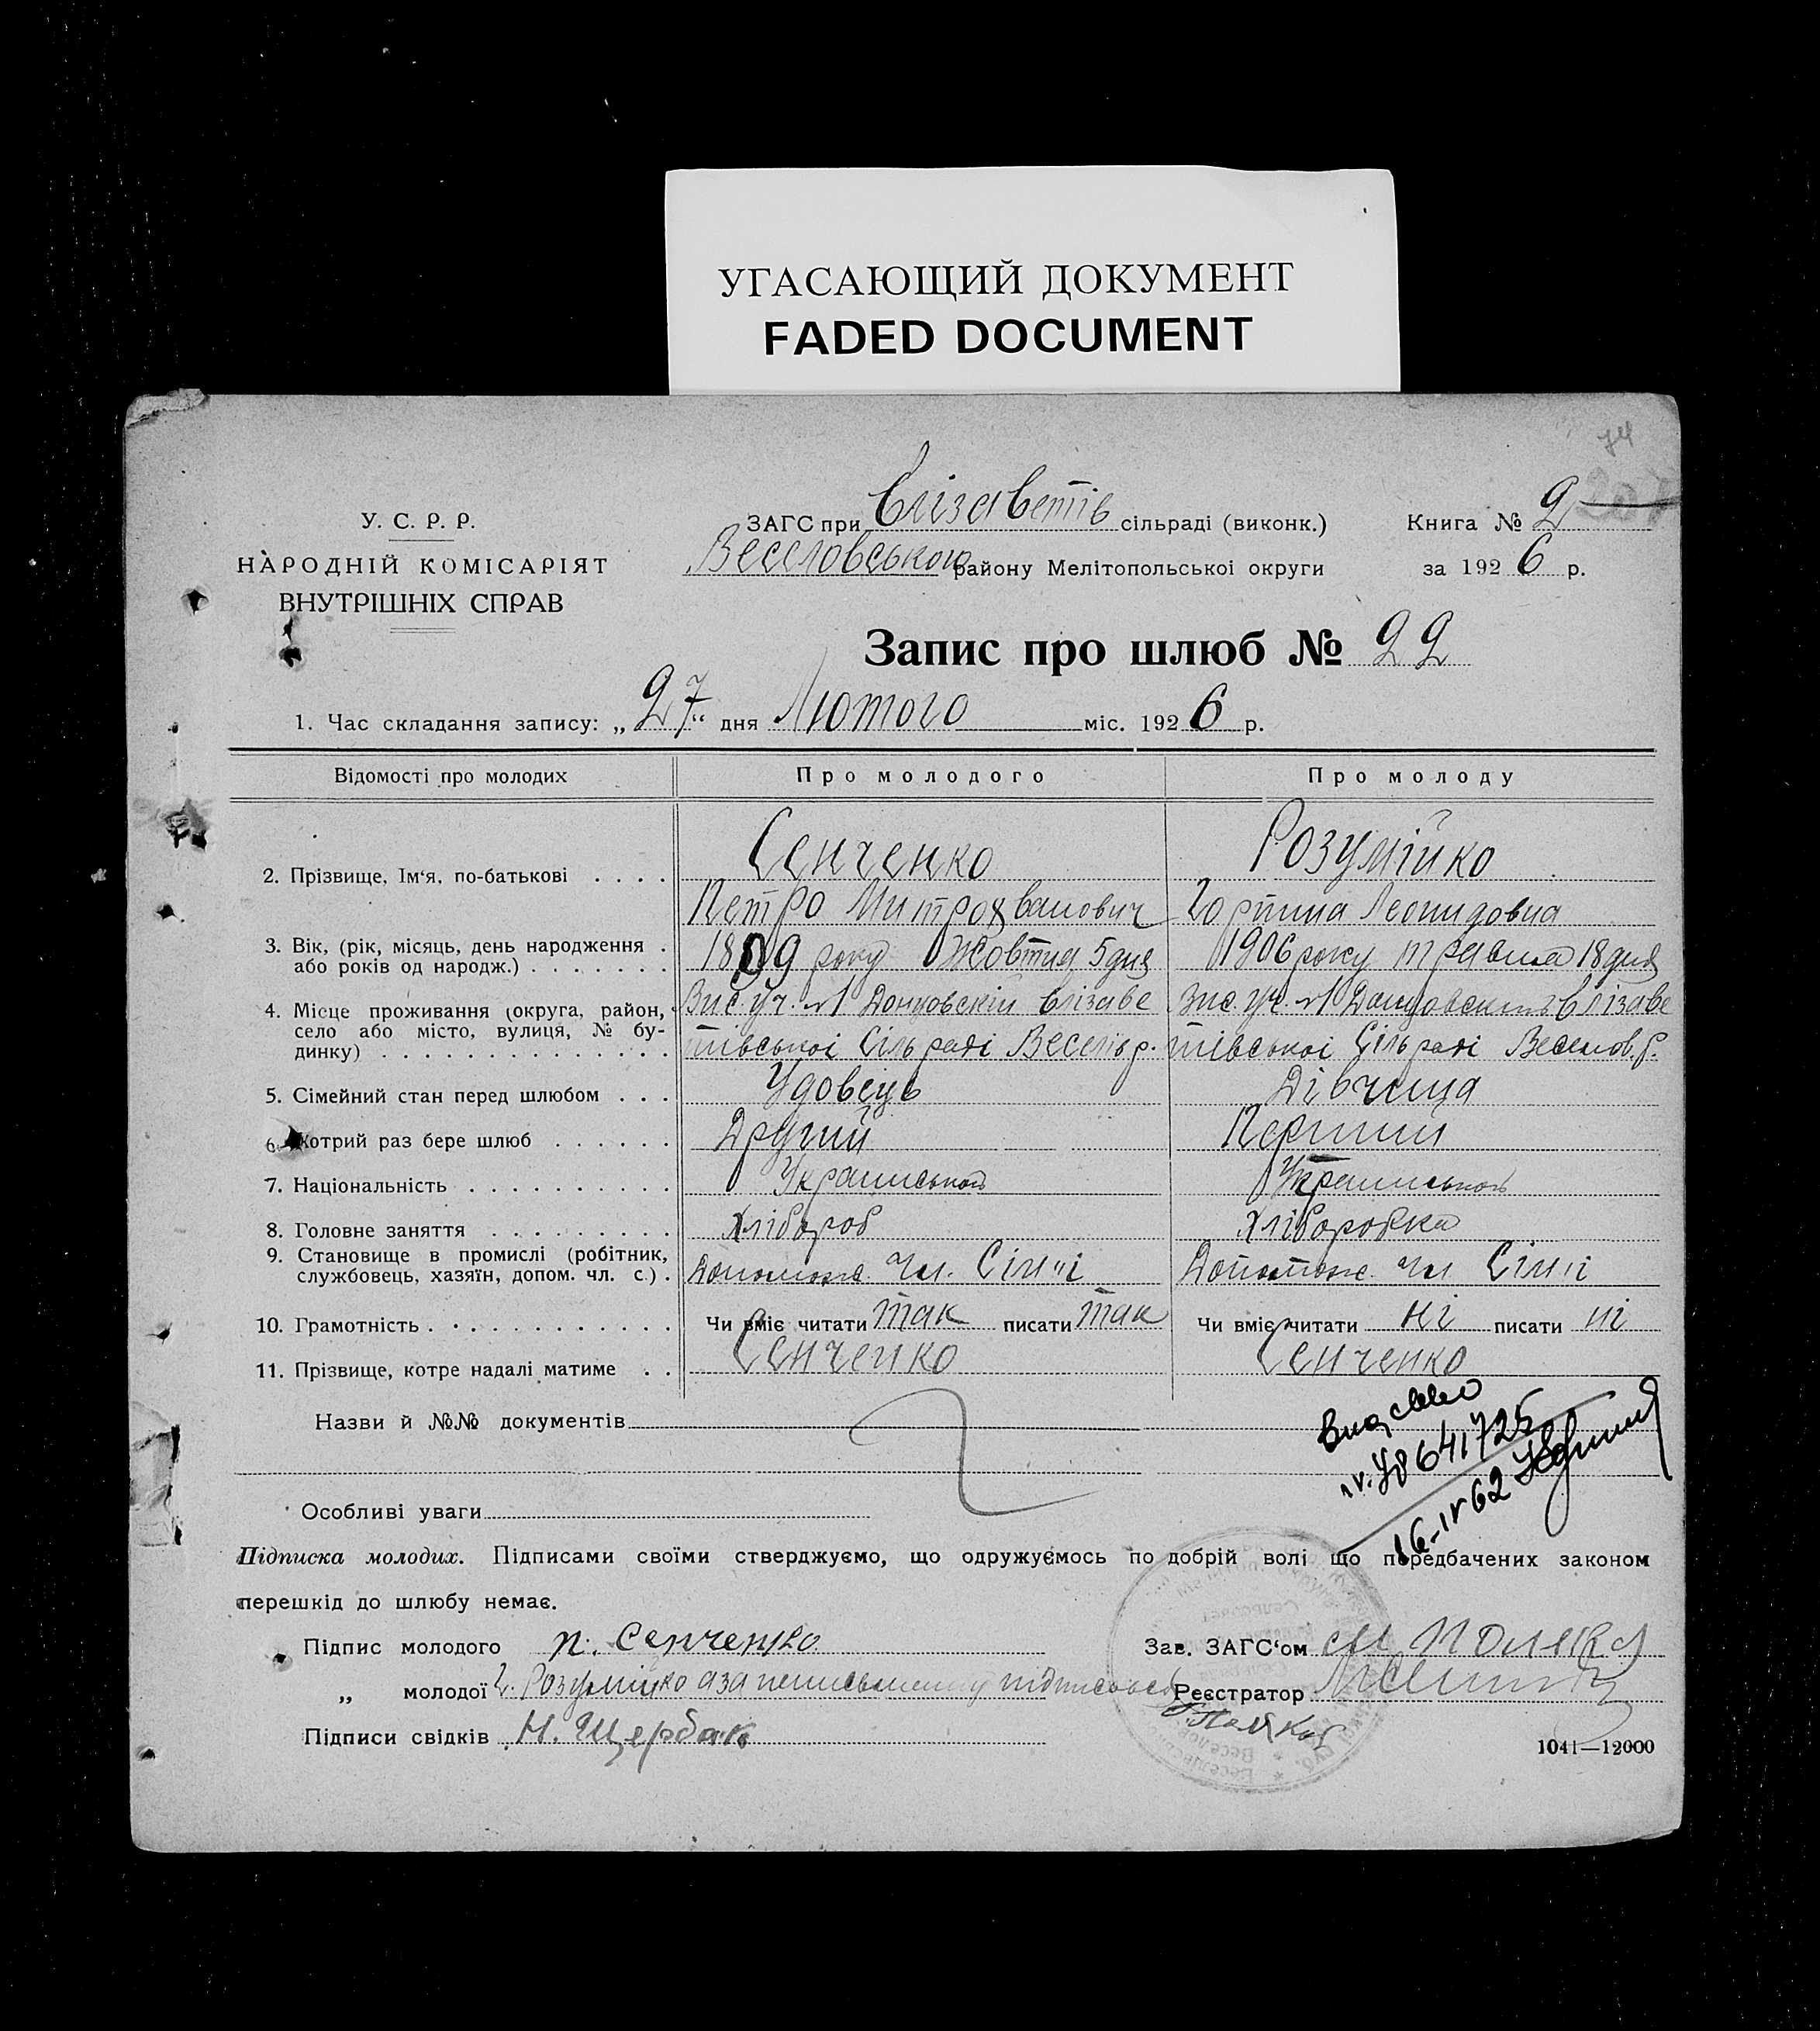 УГАСАЮЩИЙ ДОКУМЕНТ
FADED DOCUMENT
74
У. С. Р. Р.
НАРОДНІЙ КОМІСАРІЯТ
ВНУТРІШНІХ СПРАВ
ЗАГС при Єлізаветів сільраді (виконк.)
Веселовського району Мелітопольської округи
Книга № 2
за 1926 р.
Запис про шлюб № 22
1. Час складання запису: „27“ дня Лютого міс. 1926 р.
Відомості про молодих Про молодого Про молоду
2. Прізвище, Ім‘я, по-батькові . . . . Сенченко Розумійко
Петро Митрохванович Горпина Леонидовна
3. Вік, (рік, місяць, день народження . або років од народж.) . . . . . . . 1809 року Жовтня 5 дня 1906 року травня 18 дня
4. Місце проживання (округа, район, село або місто, вулиця, № будинку) . . . . . . . . . . . . . .
Вис. уч. №1 Донцовскій Єлізаве Вис. уч. №1 Єлізаве
тівської Сільраді Веселів р. тівської Сільраді Веселов. р.
5. Сімейний стан перед шлюбом . . . Удовець Дівчина
6. Котрий раз бере шлюб . . . . . . Другий Перший
7. Національність . . . . . . . . . . Української Української
8. Головне заняття . . . . . . . . . Хлібороб Хліборобка
9. Становище в промислі (робітник, службовець, хазяїн, допом. чл. с.) . Чл. Сімії Чл Сімії
10. Грамотність . . . . . . . . . . . . Чи вміє читати так писати так Чи вміє читати ні писати ні
11. Прізвище, котре надалі матиме . . Сенченко Сенченко
Назви й №№ документів
16-IV 62
Особливі уваги
Підписка молодих. Підписами своїми стверджуємо, що одружуємось по добрій волі що передбачених законом
перешкід до шлюбу немає.
Підпис молодого п. Сенченко
„ молодої Г. Розумійко а за
Підписи свідків Н. Щербак
Зав. ЗАГС‘ом
Реєстратор
1041—12000